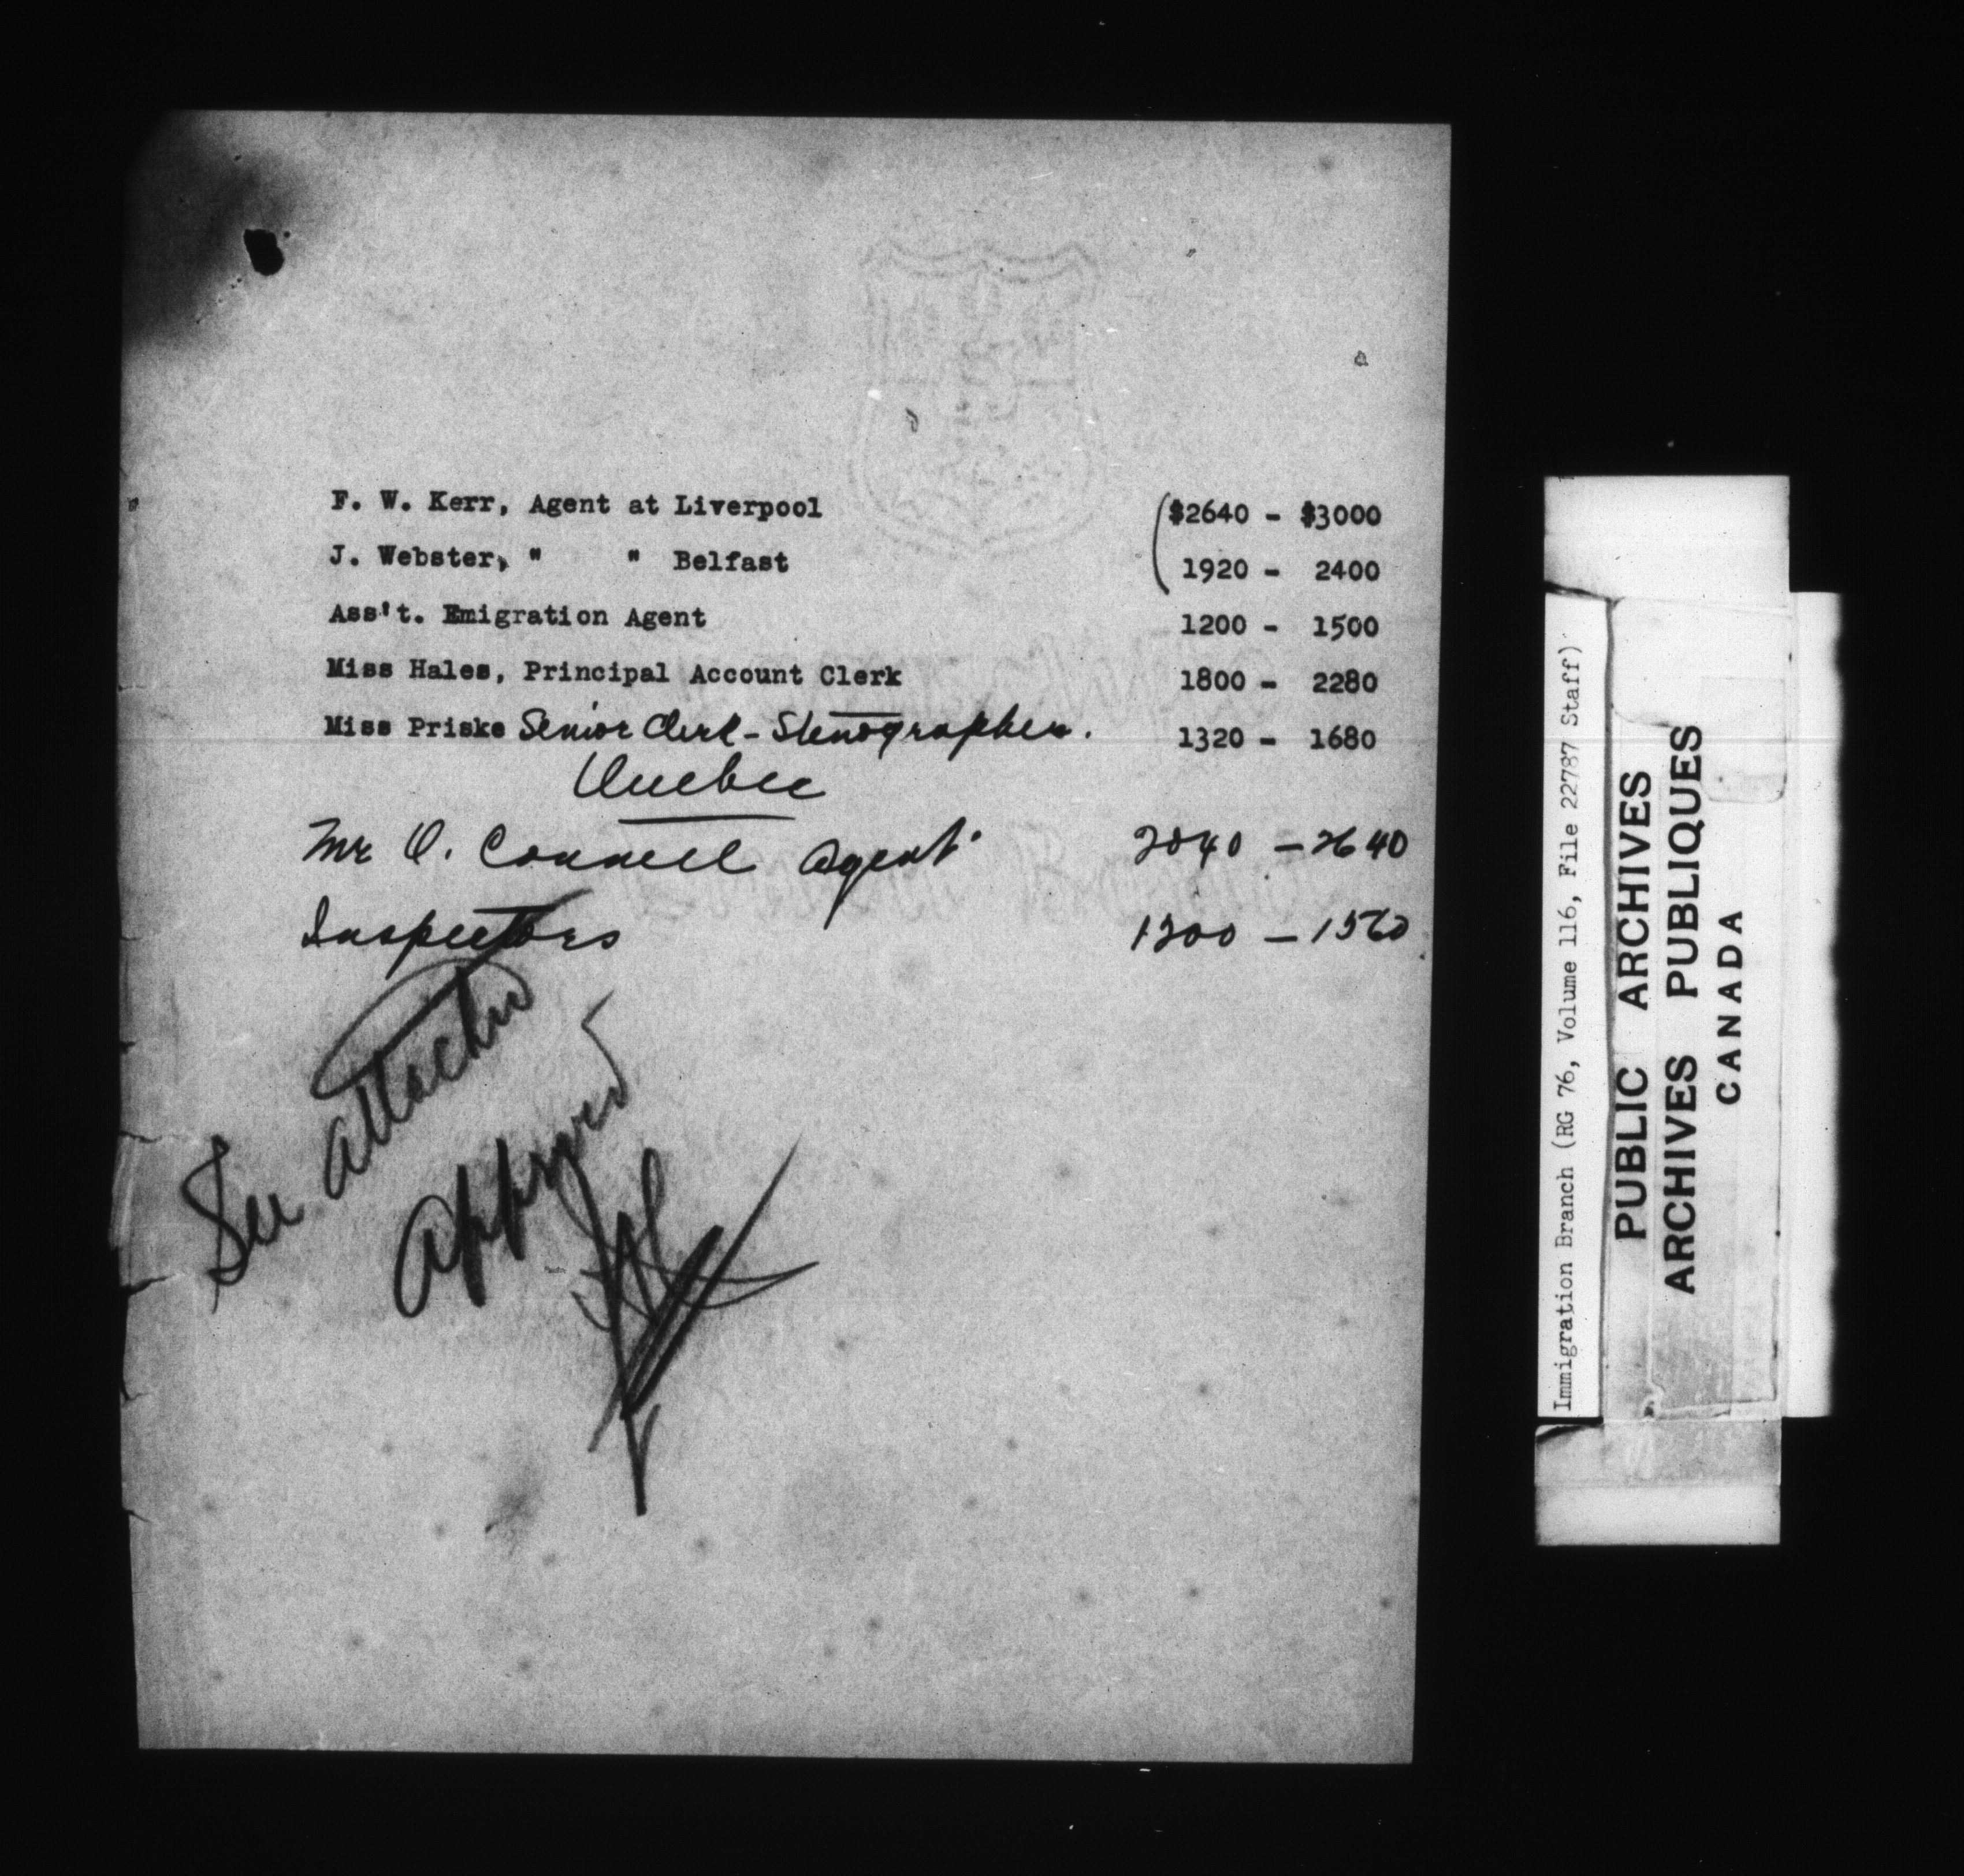 F. W. Kerr, Agent at Liverpool ($2640 - $3000
J. Webster, " " Belfast 1920 - 2400
Ass't. Emigration Agent 1200 - 1500
Miss Hales, Principal Account Clerk 1800 - 2280
Miss Priske Senior Clerk - Stenographer. 1320 - 1680
Quebec
Mr O. Connell Agent 2040 - 2640
Inspectors 1200 - 1560
See attached
Approved
Immigration Branch (RG 76, Volume 116, File 22787 Staff)
PUBLIC ARCHIVES
ARCHIVES PUBLIQUES
CANADA